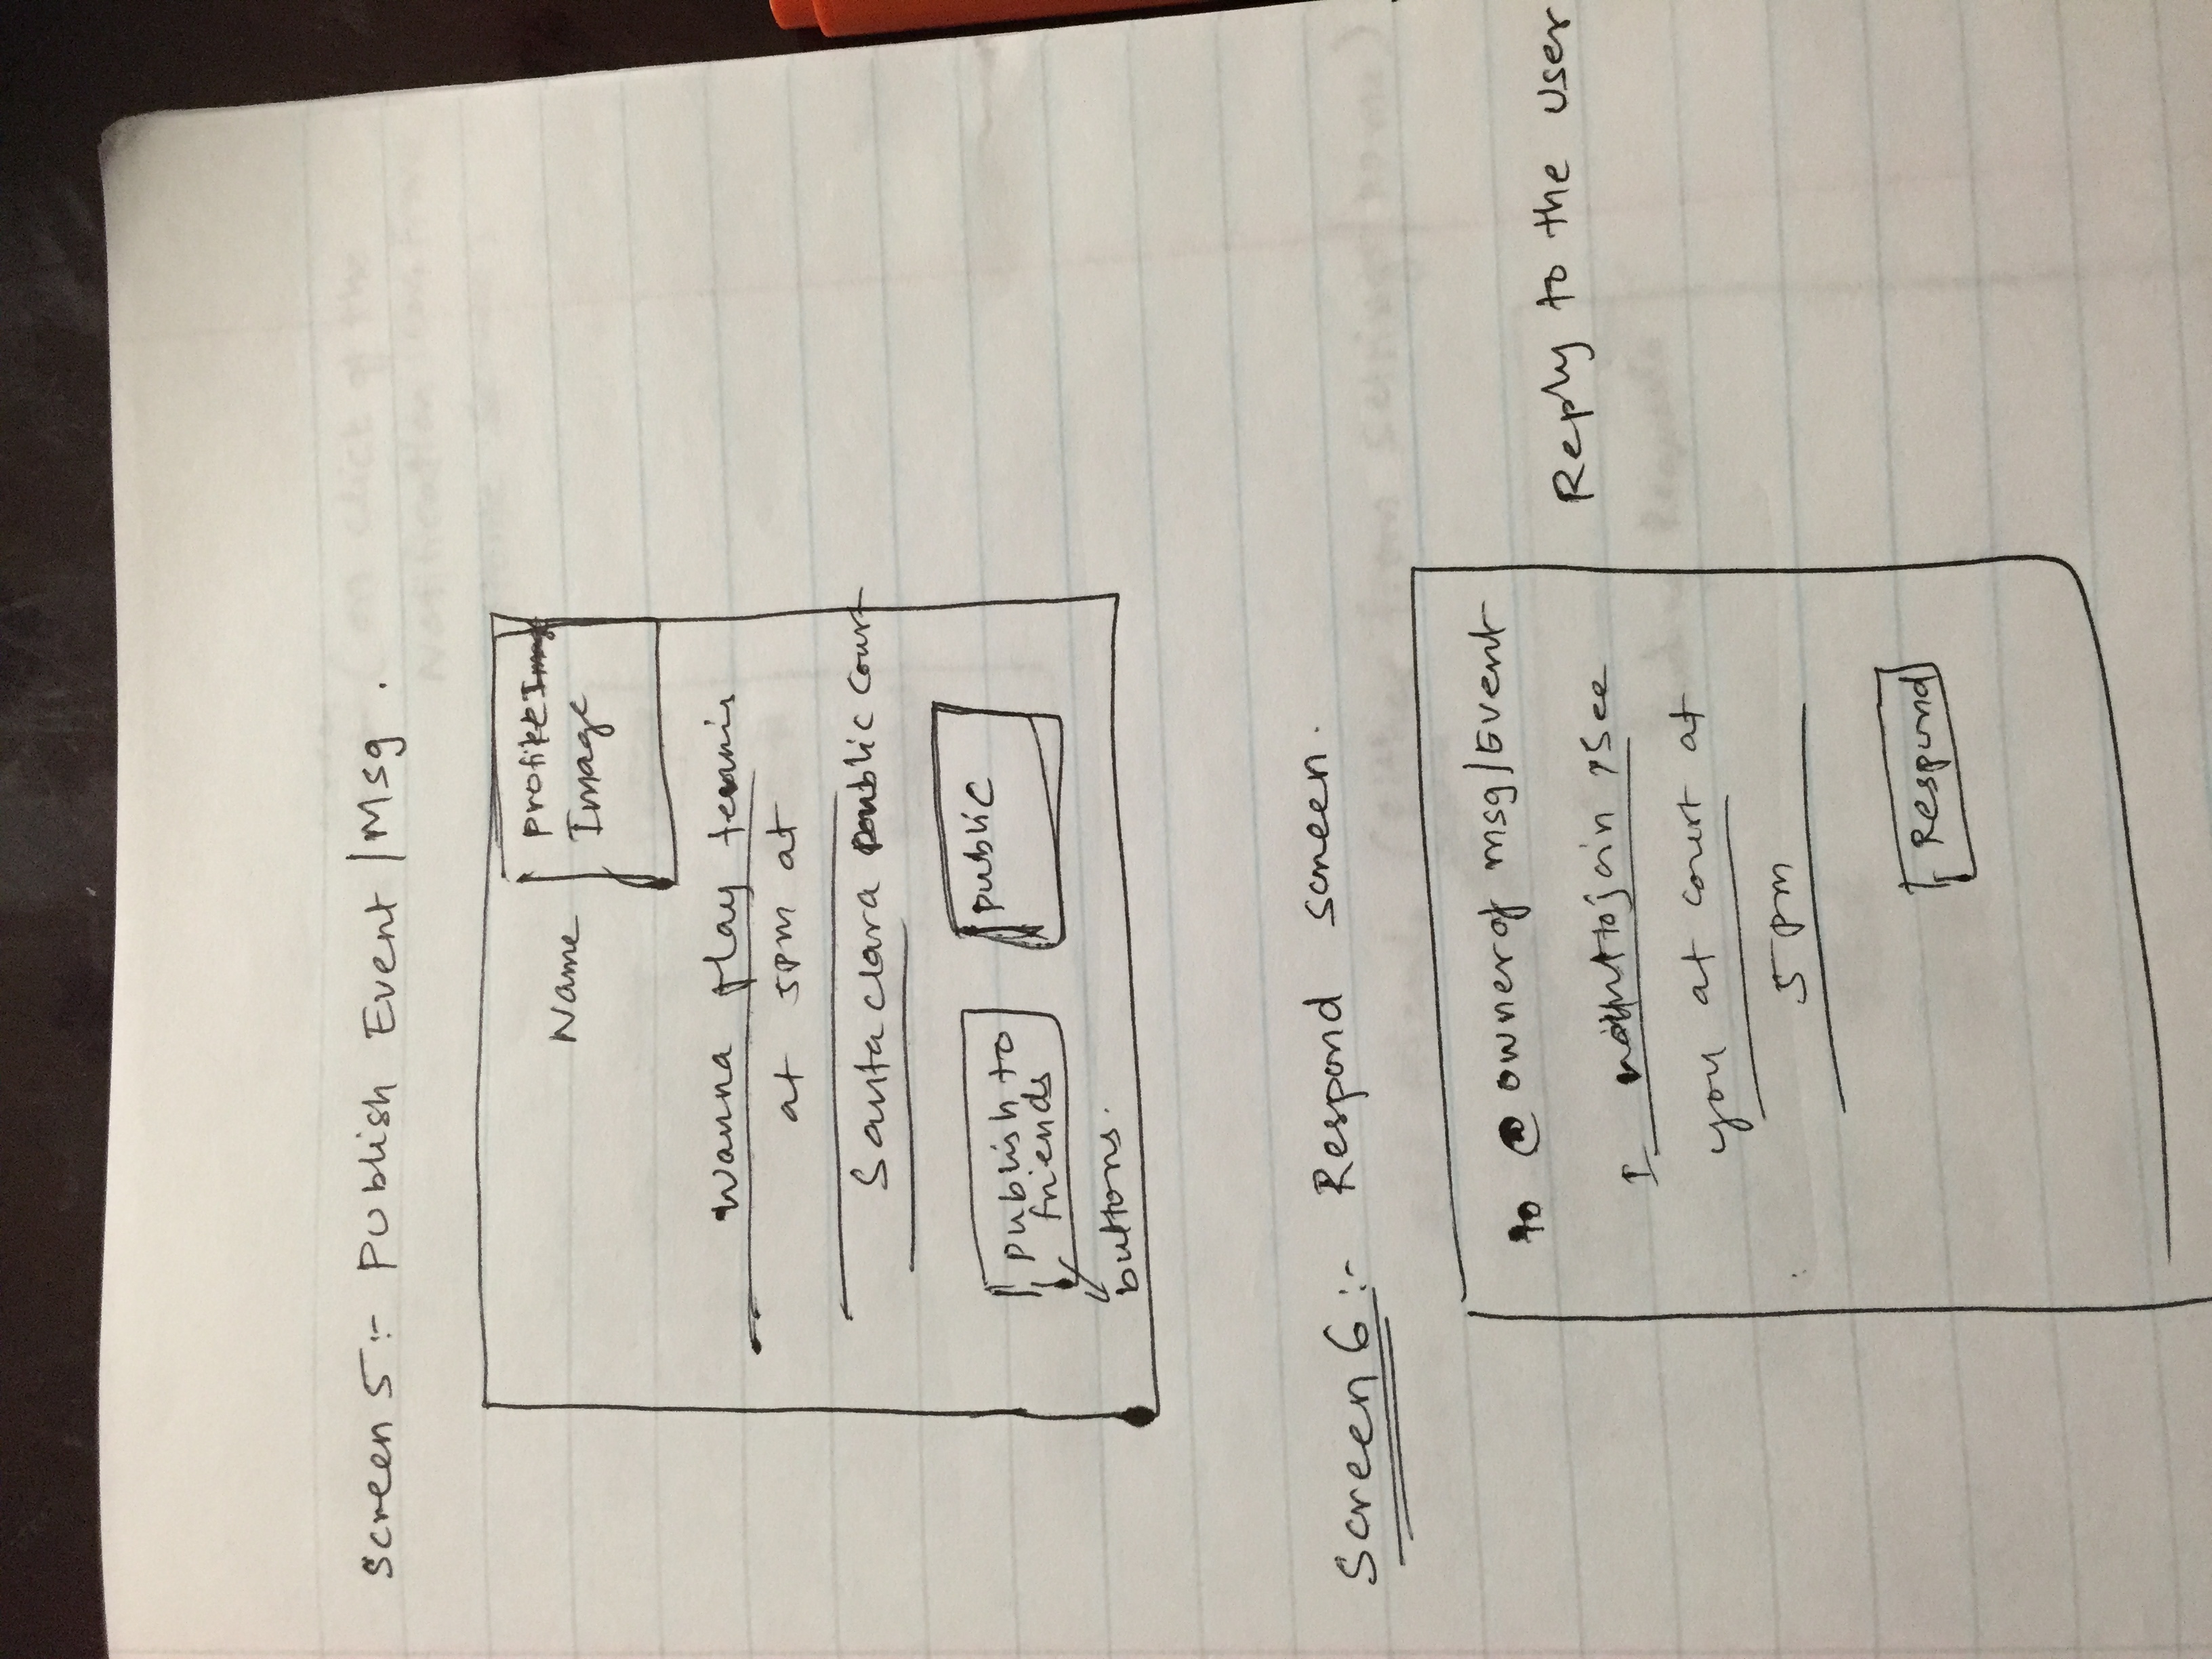 Screen 5:- Publish Event / Msg .
Name
Profile
Image
Wanna play tennis
at 5pm at
Santa clara public court
publish to
friends
public
buttons.
Screen 6:- Respond screen.
to @ owner of msg/Event
Reply to the user
I to join, see
you at court at
5 pm
Respond